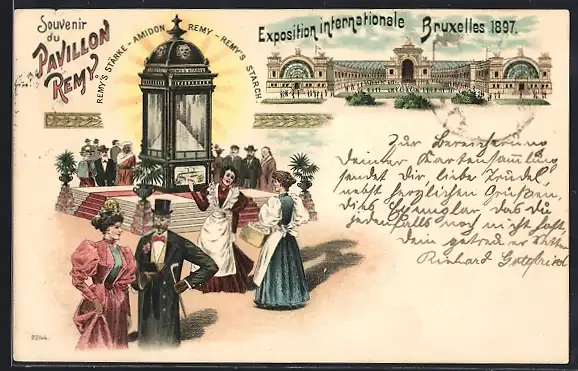 Souvenir
du
"PAVILLON
REMY."
REMY'S STÄRKE - AMIDON REMY - REMY'S STARCH.
Exposition internationale Bruxelles 1897.
REMY'S STARKE
Zur Bereicherung
Deiner Kartensammlung
sendet Dir liebe Trudel
nebst herzlichen Grüßen,
dies Exemplar das Du
jedenfalls noch nicht hast,
Dein getreuer
Reinhard Gottfried
2244.